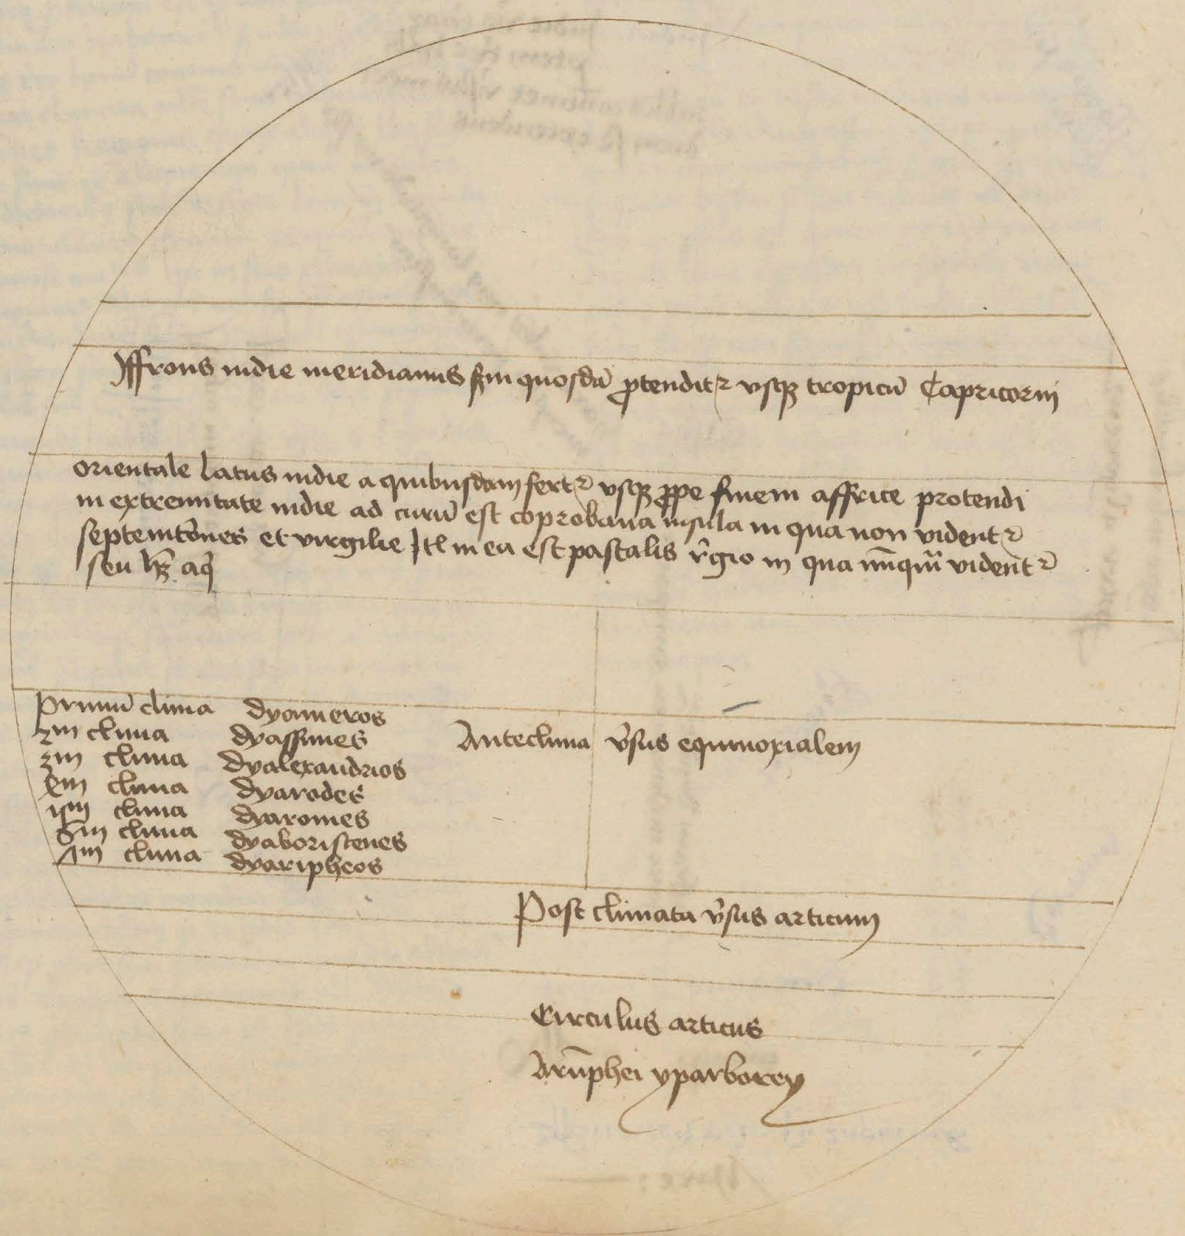 Iffrons indie meridianus scdm quosdā ꝓtenditᷣ vsqꝫ tropicū Capricorni
orientale latus indie a quibusdam fertᷣ vsqꝫ ꝓpe finem affrice protendi
in extremitate indie ad curū est coprobana insula in qua non videntᷣ
septemtōnes et virgilie Itē in ea est pastalis rēgio in qua nūnqm̄ videntᷣ
seu
Primū clima dyameros
2m clima dyassimes
3m clima dyalexandrios
4m clima dyarodes
5m clima dyaromes
6m clima dyaboristenes
7m clima dyaripheos
Anteclima v̄sus equinoxialem
Post climata v̄sus articum
Circulus articus
Arūphei yparborey